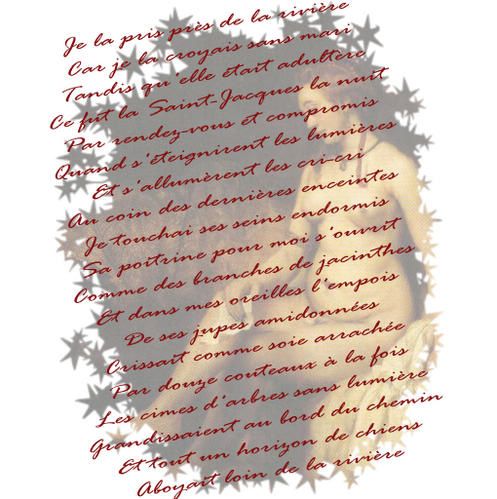 Je la pris près de la rivière
Car je la croyais sans mari
Tandis qu'elle était adultère
Ce fut la Saint-Jacques la nuit
Par rendez-vous et compromis
Quand s'éteignirent les lumières
Et s'allumèrent les cri-cri
Au coin des dernières enceintes
Je touchai ses seins endormis
Sa poitrine pour moi s'ouvrit
Comme des branches de jacinthes
Et dans mes oreilles l'empois
De ses jupes amidonnées
Crissait comme soie arrachée
Par douze couteaux à la fois
Les cimes d'arbres sans lumière
Grandissaient au bord du chemin
Et tout un horizon de chiens
Aboyait loin de la rivière